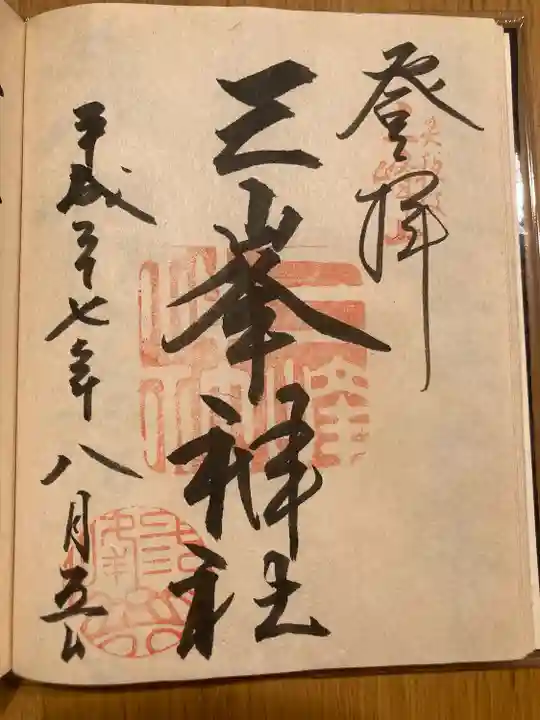 登拝
三峯神社
平成二十七年八月五日